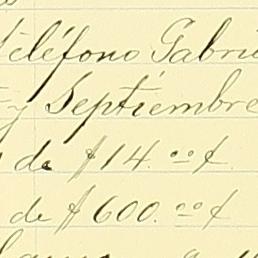 Teléfono Gabri
y Septiembre
de $14.00 ₵
de $600.00 ₵